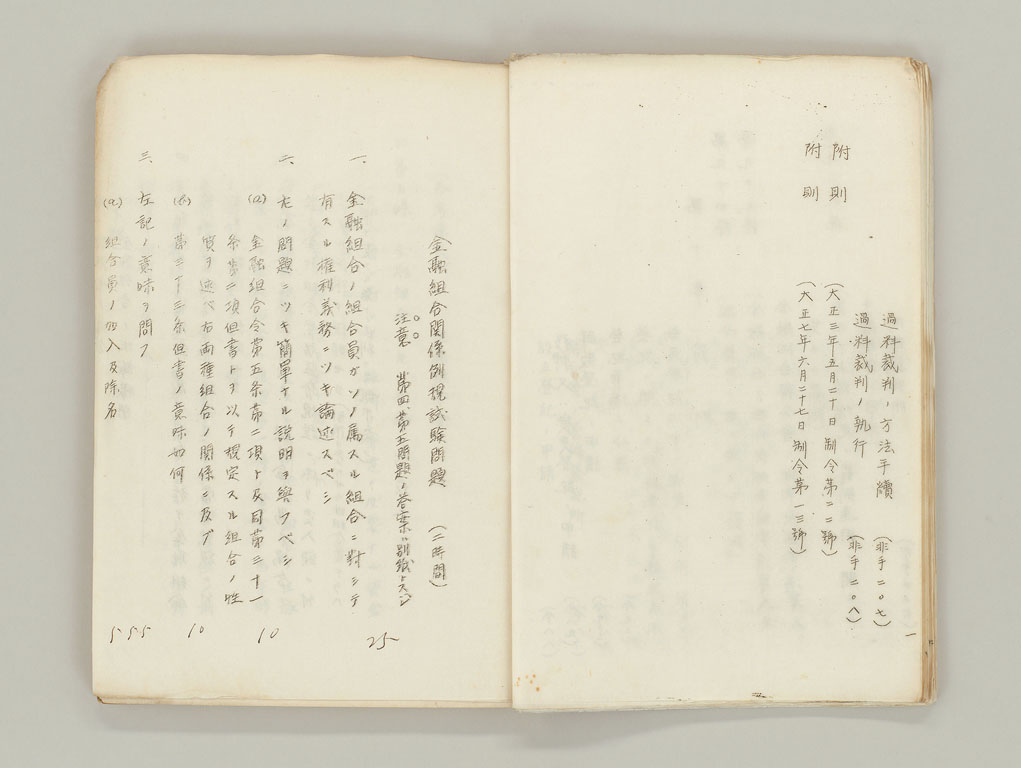 過料裁判ノ方法手續 (非手二〇七)
過料裁判ノ執行 (非手二〇八)
附則 (大正三年五月二十日制令第二二號)
附則 (大正七年六月二十七日制令第一三號)
金融組合関係例規試験問題 (二時間)
注意 第四、第五問題ノ答案ハ別紙トスベシ
一、金融組合ノ組合員ガソノ属スル組合ニ對シテ
有スル権利義務ニツキ論述スベシ 25
二、左ノ問題ニツキ簡單ナル説明ヲ與フベシ
(a) 金融組合令第五条第二項ト及同第三十一 10
条第二項但書トヲ以テ規定スル組合ノ性
質ヲ述ベ右両種組合ノ関係ニ及ブ
(b) 第三十三条但書ノ意味如何 10
三、左記ノ意味ヲ問フ 5 5 5
(a) 組合員ノ加入及除名